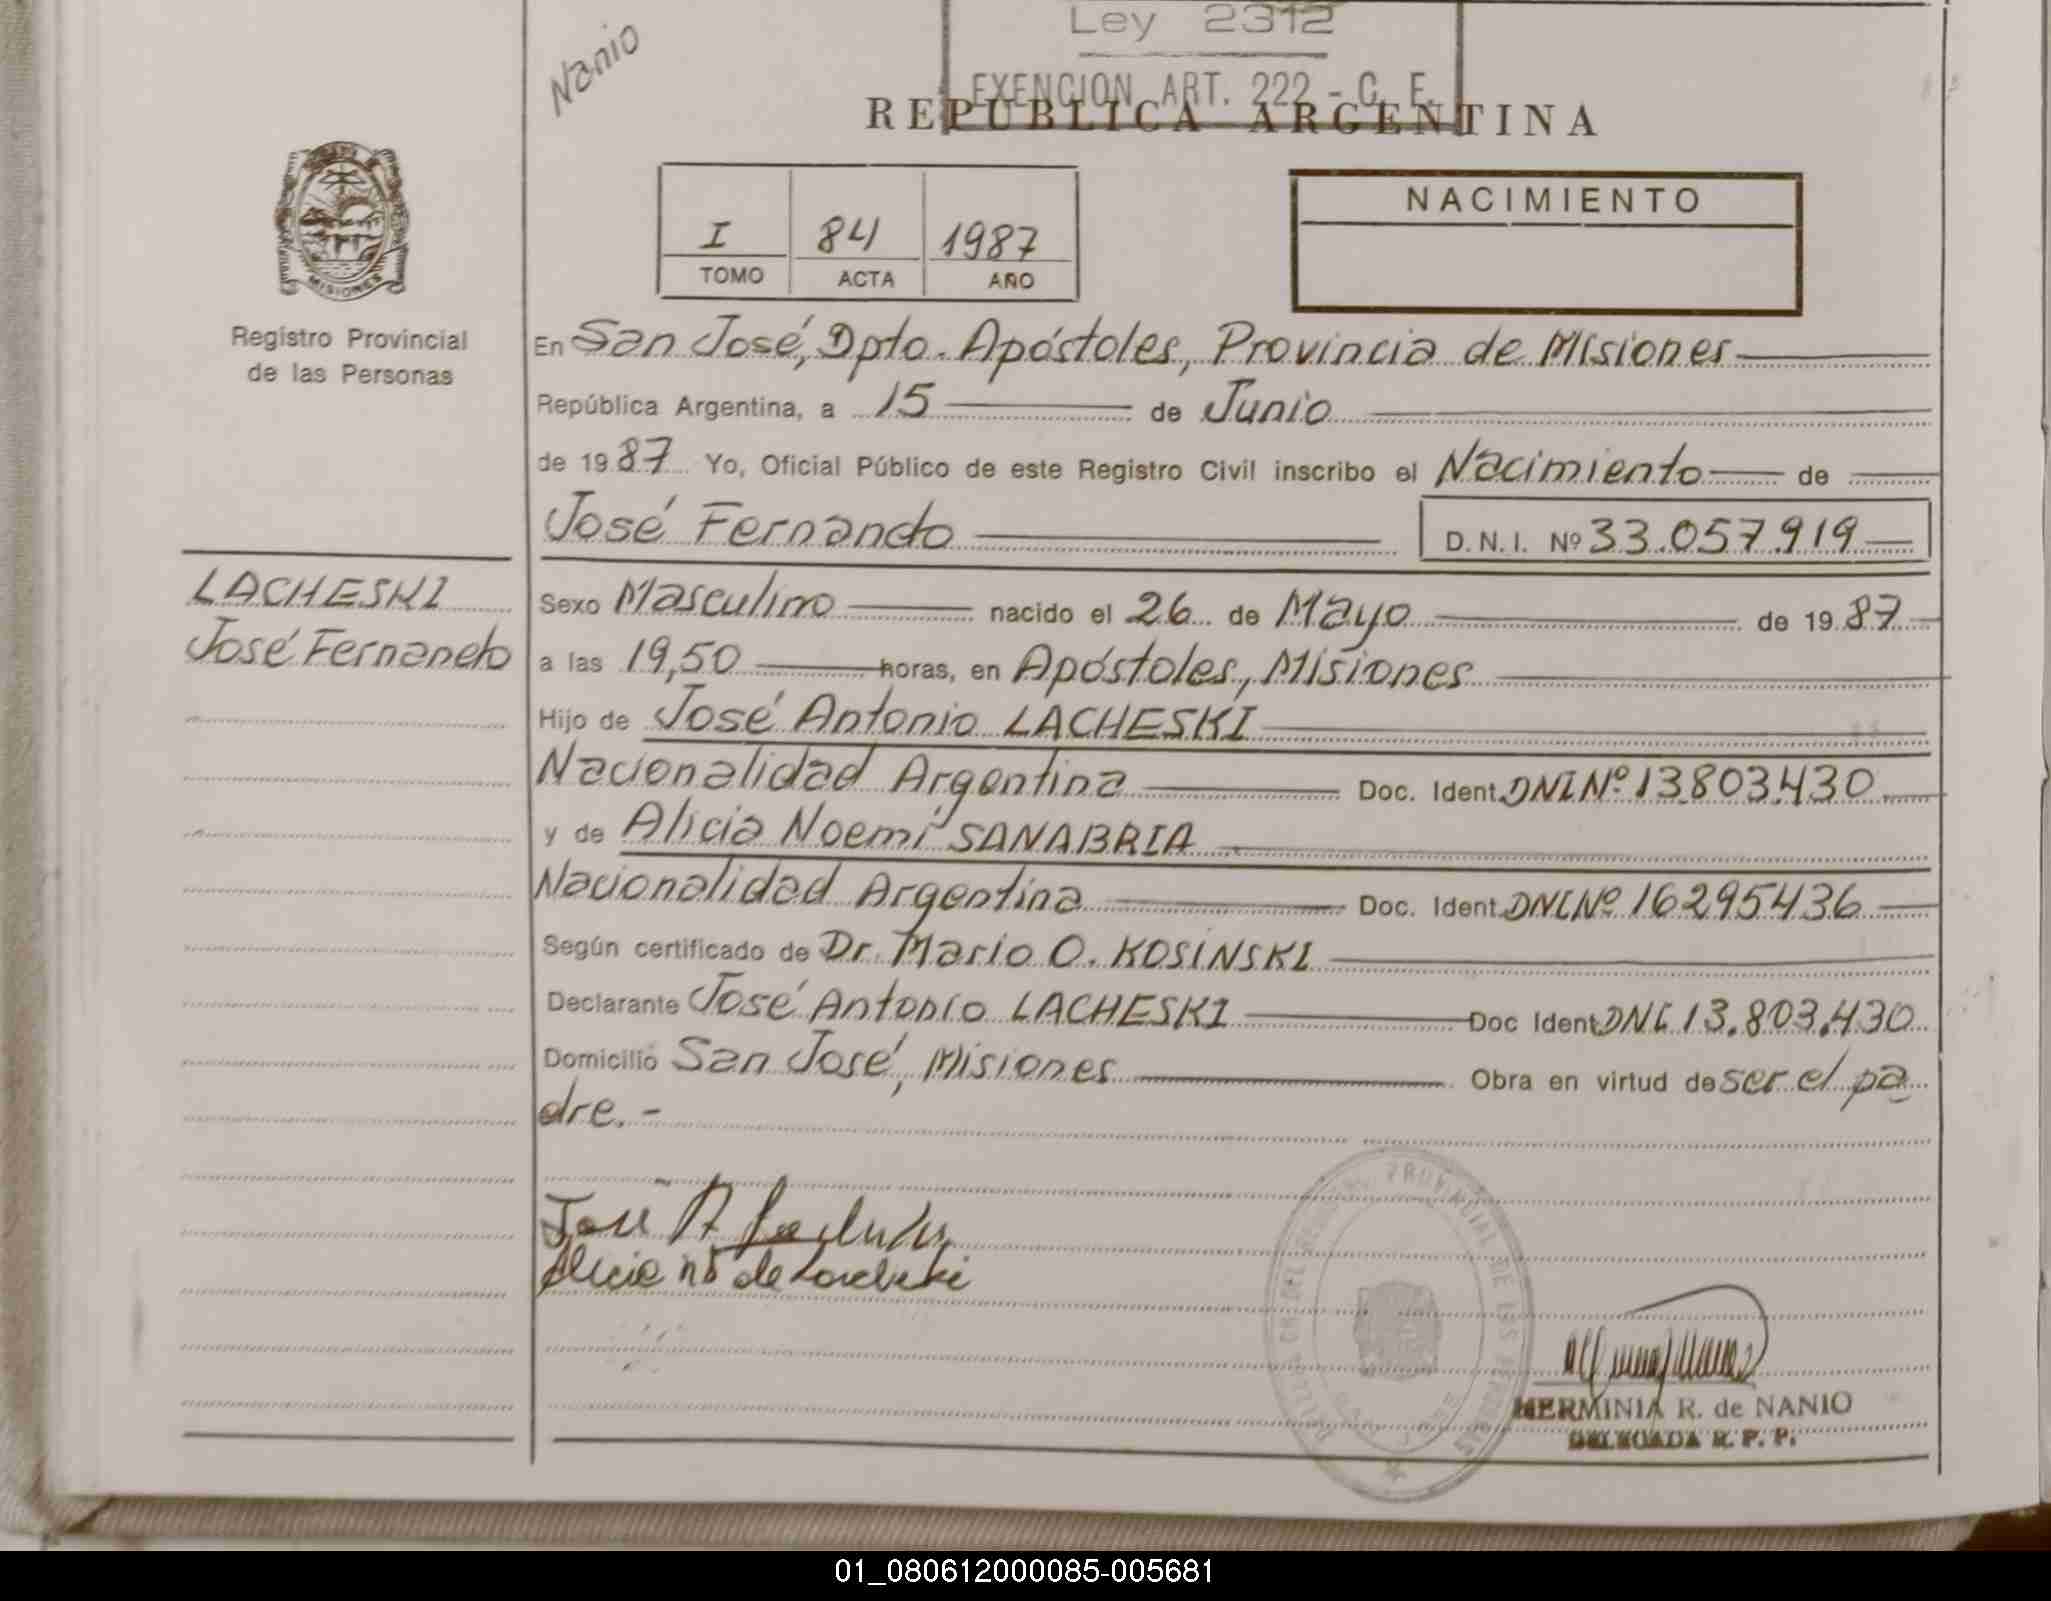 Ley 2312
EXENCION ART. 222 - C. F.
Nanio
REPUBLICA ARGENTINA
I 84 1987
TOMO ACTA AÑO
NACIMIENTO
MISIONES
Registro Provincial
de las Personas
LACHESKI
José Fernando
En San José, Dpto. Apóstoles, Provincia de Misiones
República Argentina, a 15 de Junio
de 1987 Yo, Oficial Público de este Registro Civil inscribo el Nacimiento de
José Fernando D.N.I. Nº 33.057.919
Sexo Masculino nacido el 26 de Mayo de 1987
a las 19,50 horas, en Apóstoles, Misiones
Hijo de José Antonio LACHESKI
Nacionalidad Argentina Doc. Ident. DNI Nº 13.803.430
y de Alicia Noemí SANABRIA
Nacionalidad Argentina Doc. Ident. DNI Nº 16295436
Según certificado de Dr. Mario O. KOSINSKI
Declarante José Antonio LACHESKI Doc Ident DNI 13.803.430
Domicilio San José, Misiones Obra en virtud de ser el pa
dre.-
José A
de
HERMINIA R. de NANIO
DELEGADA R. P. P.
01_080612000085-005681